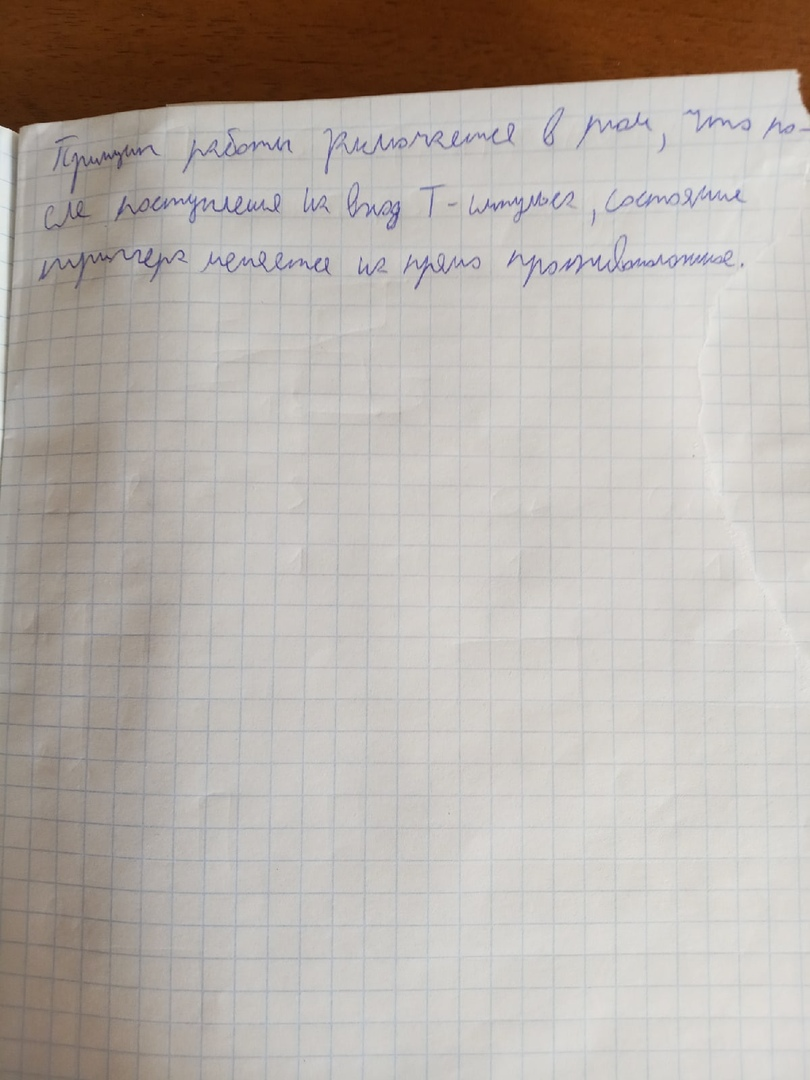 Принцип работы заключается в том, что по-
сле поступления на вход Т-импульса, состояние
триггера меняется на прямо противоположное.